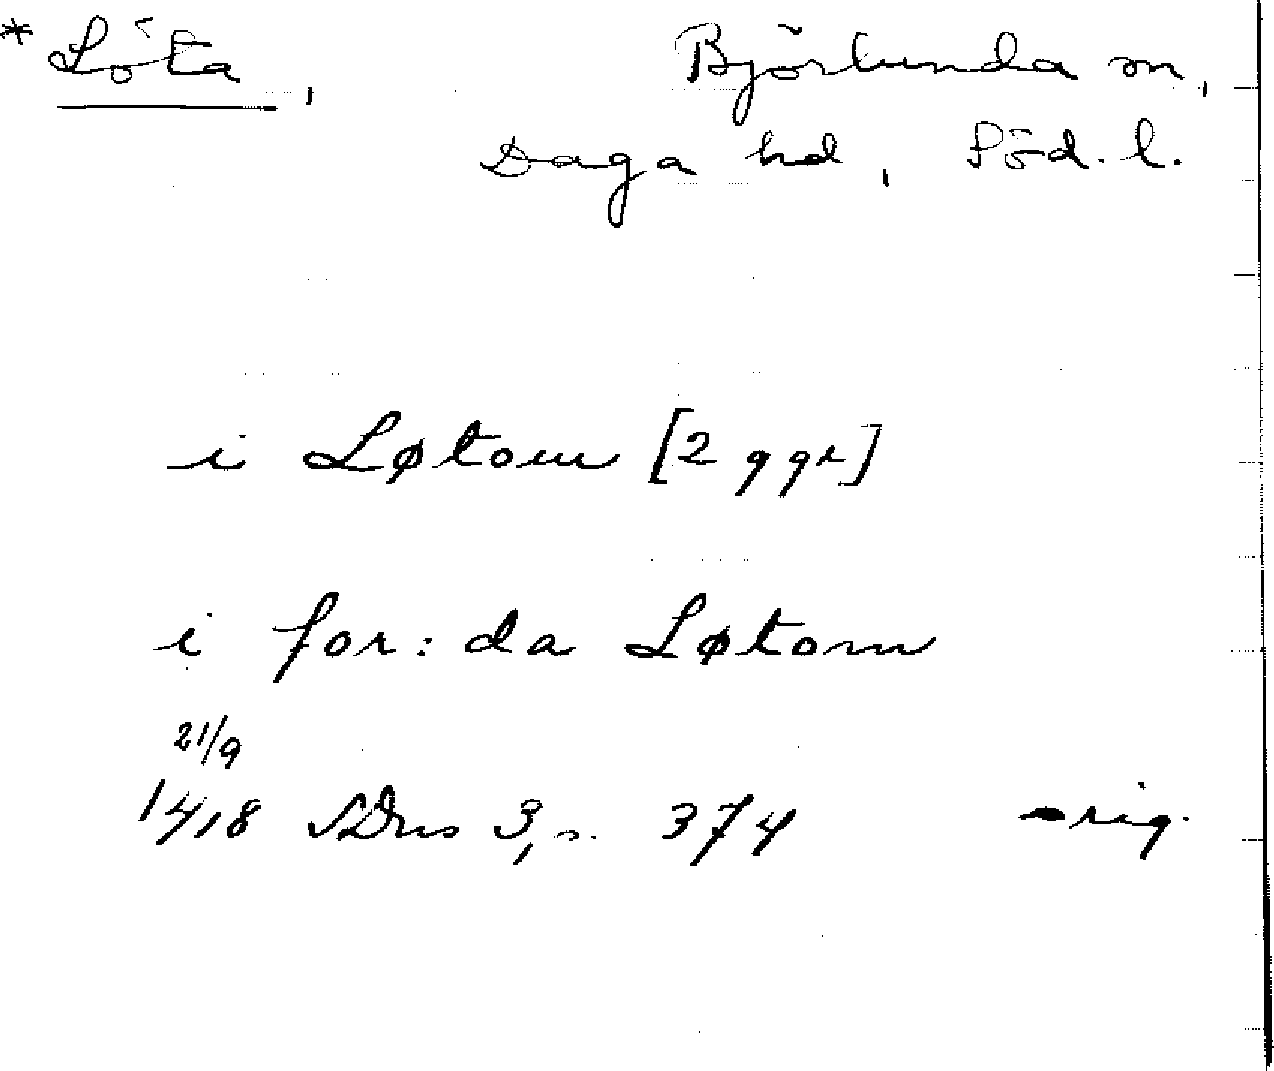 * Löta, Björlunda sn,
Daga hd, Söd. l.
i Løtom [2 ggr]
i for:da Løtom
21/9
1418 SDns 3, s. 374 orig.